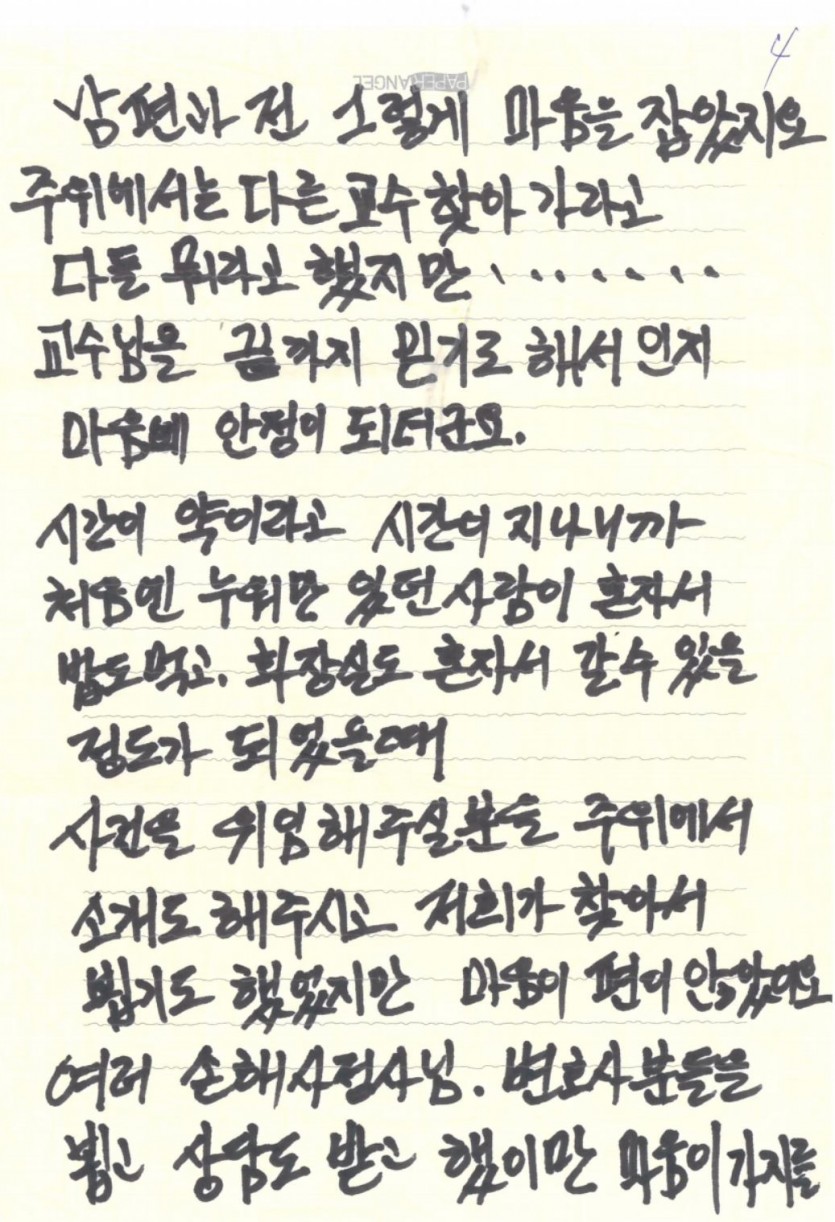 4
PAPERANGEL
남편과 전 그렇게 마음을 잡았지요
주위에서는 다른 교수 찾아 가라고
다들 뭐라고 했지만 . . . . . . .
교수님을 끝까지 믿기로 해서 인지
마음에 안정이 되더군요.
시간이 약이라고 시간이 지나니까
처음엔 누워만 있던 사람이 혼자서
밥도 먹고. 화장실도 혼자서 갈수 있을
정도가 되었을때
사건을 위임해주실분을 주위에서
소개도 해주시고 저희가 찾아서
뵙기도 했었지만 마음이 편이 않았어요
여러 손해사정사님. 변호사분들을
뵙고 상담도 받고 했이만 마음이 가지를